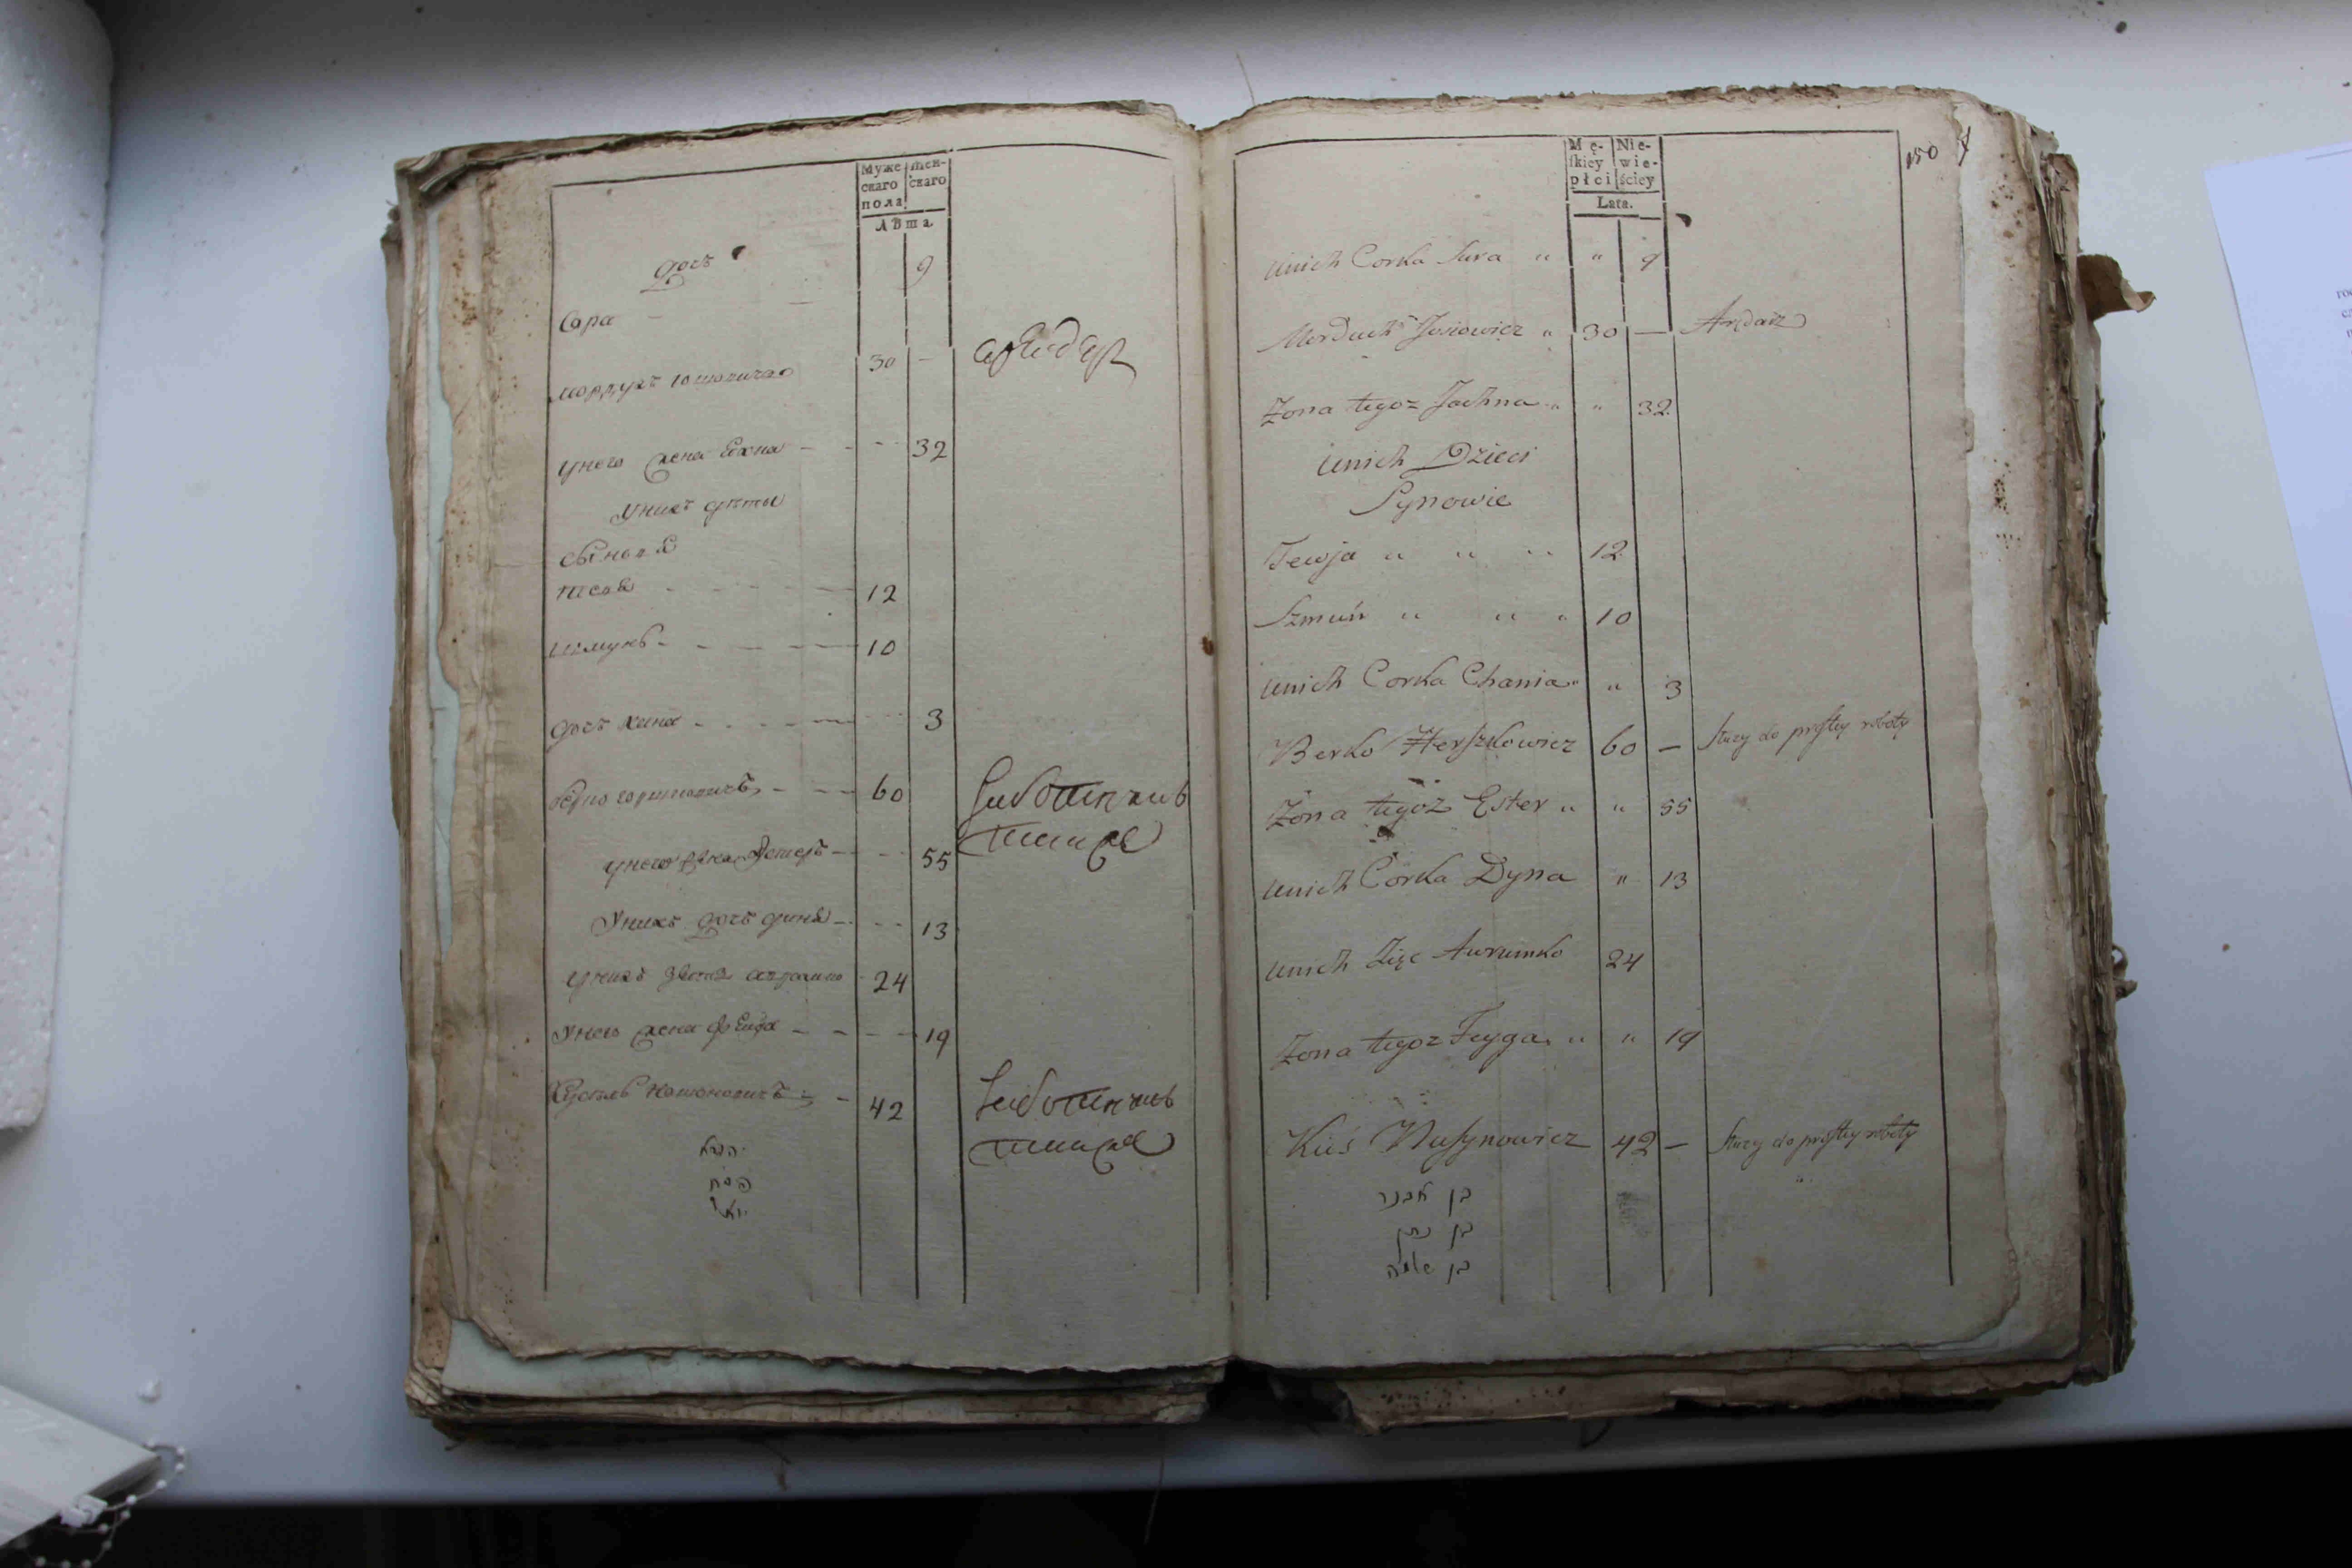 Муже
скаго
пола
Жен-
скаго
Лѣта.
дочь 9
Сора
Мордухъ Iошовичъ 30 —
арендарь
у него жена Еохна — 32
У нихъ дѣти
Сыновья
Тевья 12
Шмунь 10
дочь Хана 3
Берко Гершковичъ 60
у него жена Эстеръ — 55
У нихъ дочь Дина — 13
у нихъ зять Аврамко 24
У него жена Фейга — 19
42
Mę-
ſkiey
płci
Nie-
wie-
ściey
Lata.
150
unich Corka Sura " " 9
Morduch Josiowicz " 30 — Arędarz
Zona tegoz Jochna " " 32
unich Dzieci
Synowie
Tewja " " " 12
Szmuń " " " 10
unich Corka Chania " " 3
Berko Herſzkowicz 60 — Służy do proſtey roboty
Zona tegoz Ester " " 55
unich Corka Dyna " 13
unich Zięc Awrumko 24
Zona tegoz Feyga " " 19
Kuś Nuſynowicz 42 — Służy do proſtey roboty
בן אבנר
בן נתן
בן שלמה